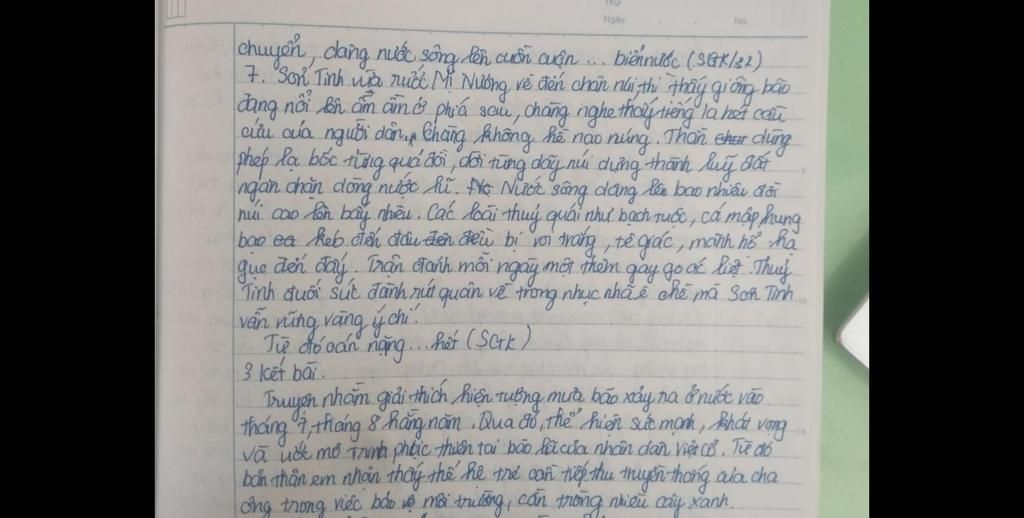 Thứ
Ngày No.
chuyển, dâng nước sông lên cuồn cuộn ... biển nước (SGK/32)
7. Sơn Tinh vừa rước Mị Nương về đến chân núi thì thấy giông bão
đang nổi lên ầm ầm ở phía sau, chàng nghe thấy tiếng la hét cầu
cứu của người dân, chàng không hề nao núng. Thần dùng
phép lạ bốc từng quả đồi, dời từng dãy núi dựng thành luỹ đất
ngăn chặn dòng nước lũ. Nước sông dâng lên bao nhiêu đồi
núi cao lên bấy nhiêu. Các loài thuỷ quái như bạch tuộc, cá mập hung
bạo kéo đến đâu đều bị voi trắng, tê giác, mãnh hổ hạ
gục đến đấy. Trận đánh mỗi ngày một thêm gay go ác liệt. Thuỷ
Tinh đuối sức đành rút quân về trong nhục nhã ê chề mà Sơn Tinh
vẫn vững vàng ý chí.
Từ đó oán nặng ... hết (SGK)
3 Kết bài.
Truyện nhằm giải thích hiện tượng mưa bão xảy ra ở nước vào
tháng 7, tháng 8 hằng năm. Qua đó, thể hiện sức mạnh, khát vọng
và ước mơ trinh phục thiên tai bão lũ của nhân dân Việt cổ. Từ đó
bản thân em nhận thấy thế hệ trẻ cần tiếp thu truyền thống của cha
ông trong việc bảo vệ môi trường, cần trồng nhiều cây xanh.